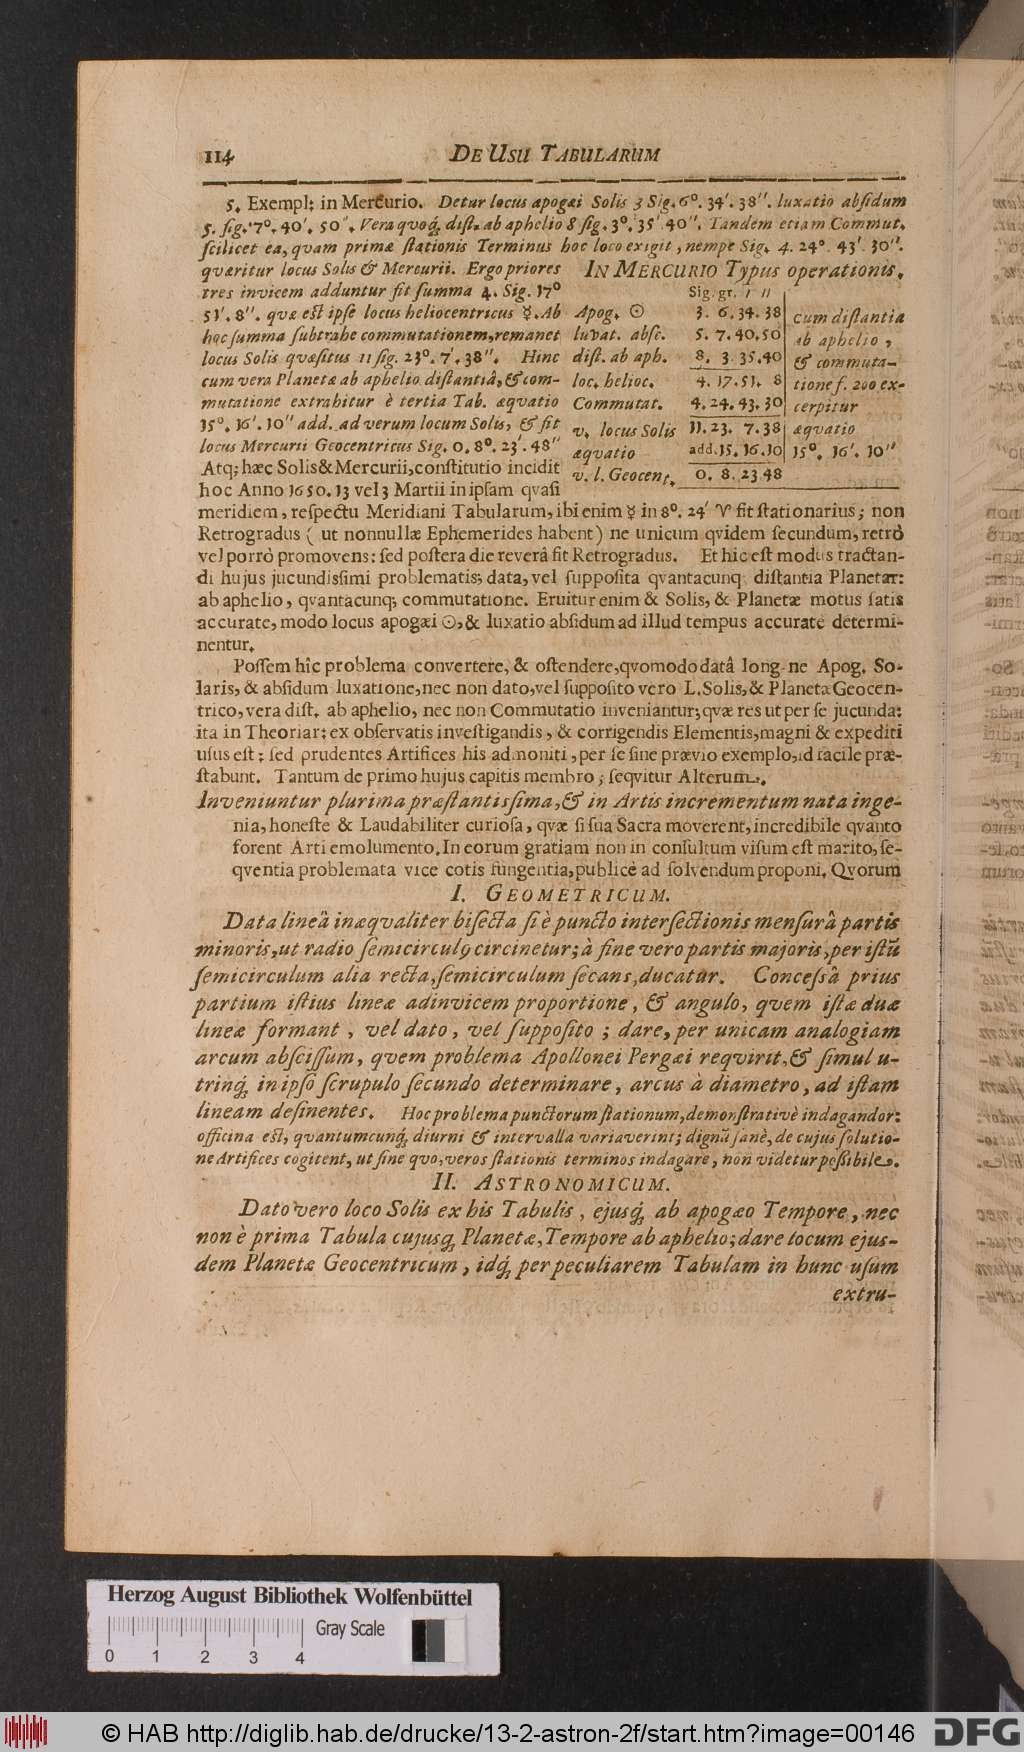 114 DE USU TABULARUM
5. Exempl: in Mercurio. Detur locus apogæi Solis 3 Sig. 6°. 34'. 38''. luxatio absidum
5. sig. 7°. 40'. 50''. Vera quoq́; dist. ab aphelio 8 sig. 3°. 35' 40''. Tandem etiam Commut.
scilicet ea, quam primæ stationis Terminus hoc loco exigit, nempe Sig. 4. 24°. 43'. 30''.
quæritur locus Solis & Mercurii. Ergo priores
tres invicem adduntur fit summa 4. Sig. 17°
51'. 8''. quæ est ipse locus heliocentricus ☿. Ab
hoc summa subtrahe commutationem, remanet
locus Solis quæsitus 11 sig. 23°. 7'. 38''. Hinc
cum vera Planetæ ab aphelio distantiâ, & com-
mutatione extrahitur è tertia Tab. æquatio
15°. 16'. 10'' add. ad verum locum Solis, & fit
locus Mercurii Geocentricus Sig. 0. 8°. 23'. 48''
Atq; hæc Solis & Mercurii, constitutio incidit
hoc Anno 1650. 13 vel 3 Martii in ipsam qvasi
IN MERCURIO Typus operationis.
Sig. gr. ' ''
Apog. ☉ 3. 6. 34. 38
luxat. absi. 5. 7. 40. 50
dist. ab aph. 8. 3. 35. 40
loc. helioc. 4. 17. 51. 8
Commutat. 4. 24. 43. 30
v. locus Solis 11. 23. 7. 38
æquatio add. 15. 16. 10
v. l. Geocent. 0. 8. 23 48
cum distantia
ab aphelio,
& commuta-
tione f. 200 ex-
cerpitur
æquatio
15°. 16'. 10''
meridiem, respectu Meridiani Tabularum, ibi enim ☿ in 8°. 24' ♈ fit stationarius; non
Retrogradus ( ut nonnullæ Ephemerides habent) ne unicum qvidem secundum, retrò
vel porrò promovens: sed postera die reverâ fit Retrogradus. Et hic est modus tractan-
di hujus jucundissimi problematis; data, vel supposita qvantacunq; distantia Planetar:
ab aphelio, qvantacunq; commutatione. Eruitur enim & Solis, & Planetæ motus satis
accurate, modo locus apogæi ☉, & luxatio absidum ad illud tempus accurate determi-
nentur.
Possem hîc problema convertere, & ostendere, qvomodo datâ long-ne Apog. So-
laris, & absidum luxatione, nec non dato, vel supposito vero L. Solis, & Planetæ Geocen-
trico, vera dist. ab aphelio, nec non Commutatio inveniantur; qvæ res ut per se jucunda:
ita in Theoriar: ex observatis investigandis, & corrigendis Elementis, magni & expediti
usus est: sed prudentes Artifices his admoniti, per se sine prævio exemplo, id facile præ-
stabunt. Tantum de primo hujus capitis membro; seqvitur Alterum.
Inveniuntur plurima præstantissima, & in Artis incrementum nata inge-
nia, honeste & Laudabiliter curiosa, qvæ si sua Sacra moverent, incredibile qvanto
forent Arti emolumento. In eorum gratiam non in consultum visum est marito, se-
qventia problemata vice cotis fungentia, publicè ad solvendum proponi. Qvorum
I. GEOMETRICUM.
Data lineâ inæqualiter bisecta si è puncto intersectionis mensurâ partis
minoris, ut radio semicirculꝰ circinetur; à fine vero partis majoris, per istū
semicirculum alia recta, semicirculum secans, ducatur. Concessâ prius
partium istius lineæ adinvicem proportione, & angulo, qvem istæ duæ
lineæ formant, vel dato, vel supposito; dare, per unicam analogiam
arcum abscissum, quem problema Apollonei Pergæi reqvirit, & simul u-
trinq́; in ipso scrupulo secundo determinare, arcus à diametro, ad istam
lineam desinentes. Hoc problema punctorum stationum, demonstrativè indagandor:
officina est, qvantumcunq́; diurni & intervalla variaverint; dignū sanè, de cujus solutio-
ne Artifices cogitent, ut sine qvo, veros stationis terminos indagare, non videtur possibile.
II. ASTRONOMICUM.
Dato vero loco Solis ex his Tabulis, ejusq́; ab apogæo Tempore, nec
non è prima Tabula cujusq́; Planetæ, Tempore ab aphelio; dare locum ejus-
dem Planetæ Geocentricum, idq́; per peculiarem Tabulam in hunc usum
extru-
Herzog August Bibliothek Wolfenbüttel
Gray Scale
0 1 2 3 4
© HAB http://diglib.hab.de/drucke/13-2-astron-2f/start.htm?image=00146
DFG